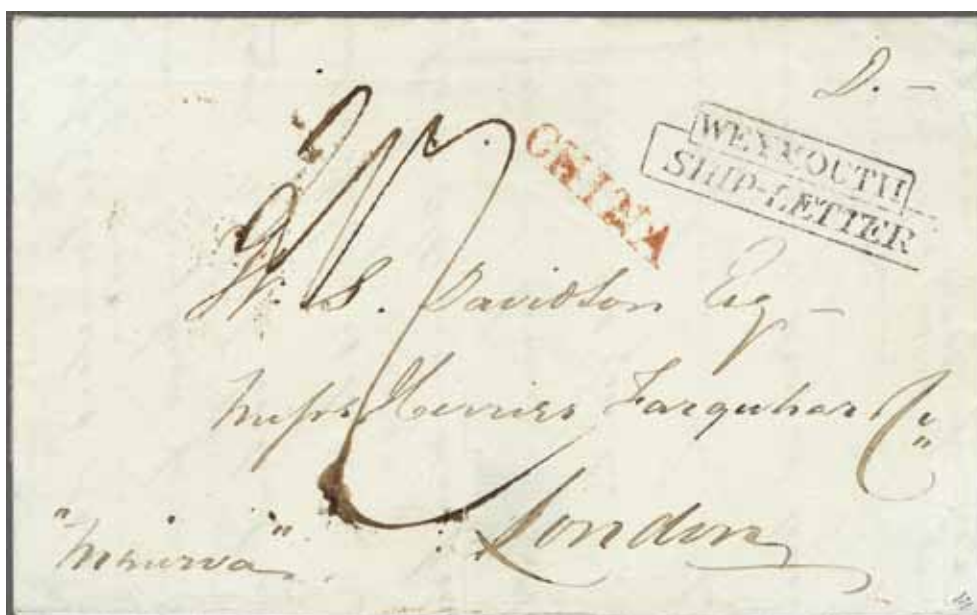 D. —
WEYMOUTH
SHIP-LETTER
CHINA
W. S. Davidson Esq —
Messrs Herries Farquhar & Co
London
"Minerva"